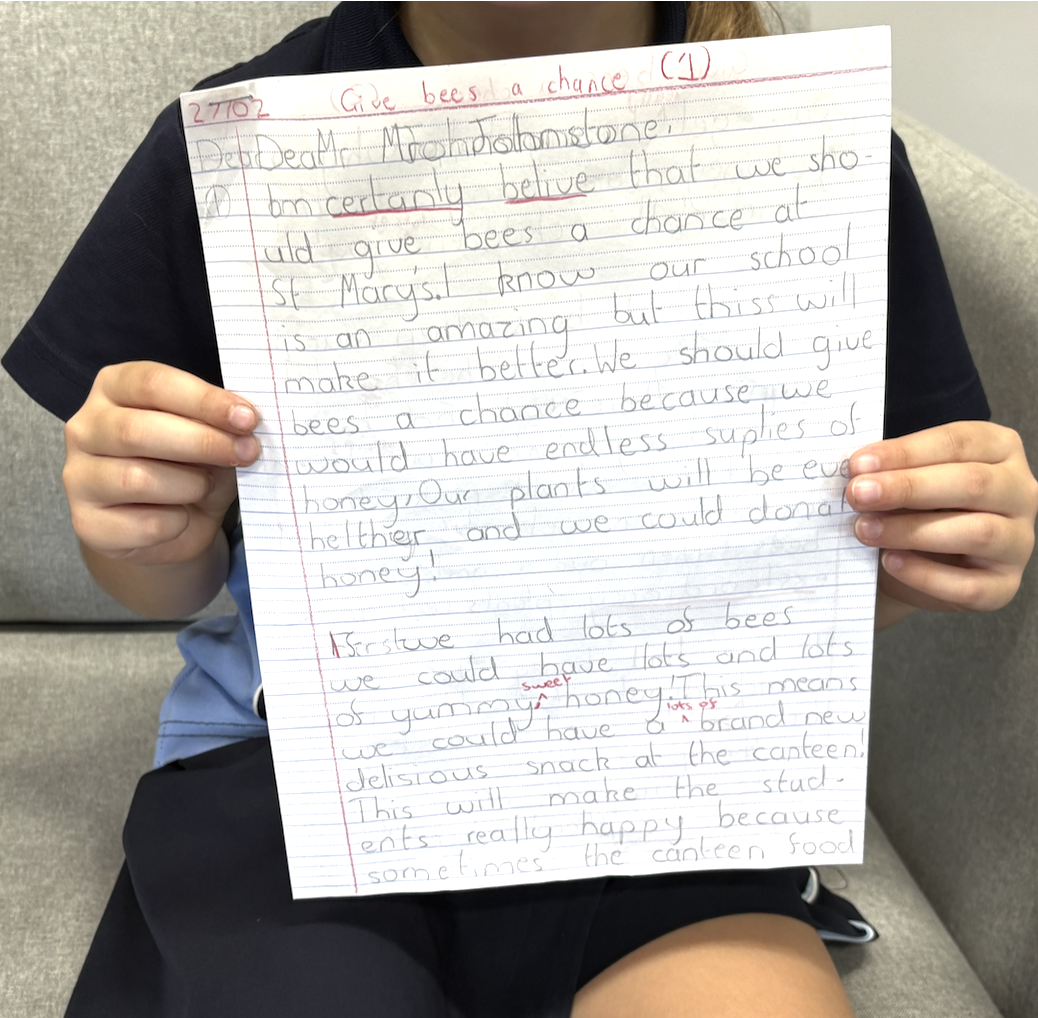 27/02 Give bees a chance (1)
Dear Mr Johnstone,
certanly belive that we sho-
uld give bees a chance at
St Mary's. I know our school
is an amazing but thiss will
make it better. We should give
bees a chance because we
would have endless suplies of
honey, Our plants will be eve
helthier and we could donat
honey!
First we had lots of bees
we could have lots and lots
of yummy sweet honey! This means
we could have a lots of brand new
delisious snack at the canteen!
This will make the stud-
ents really happy because
sometimes the canteen food